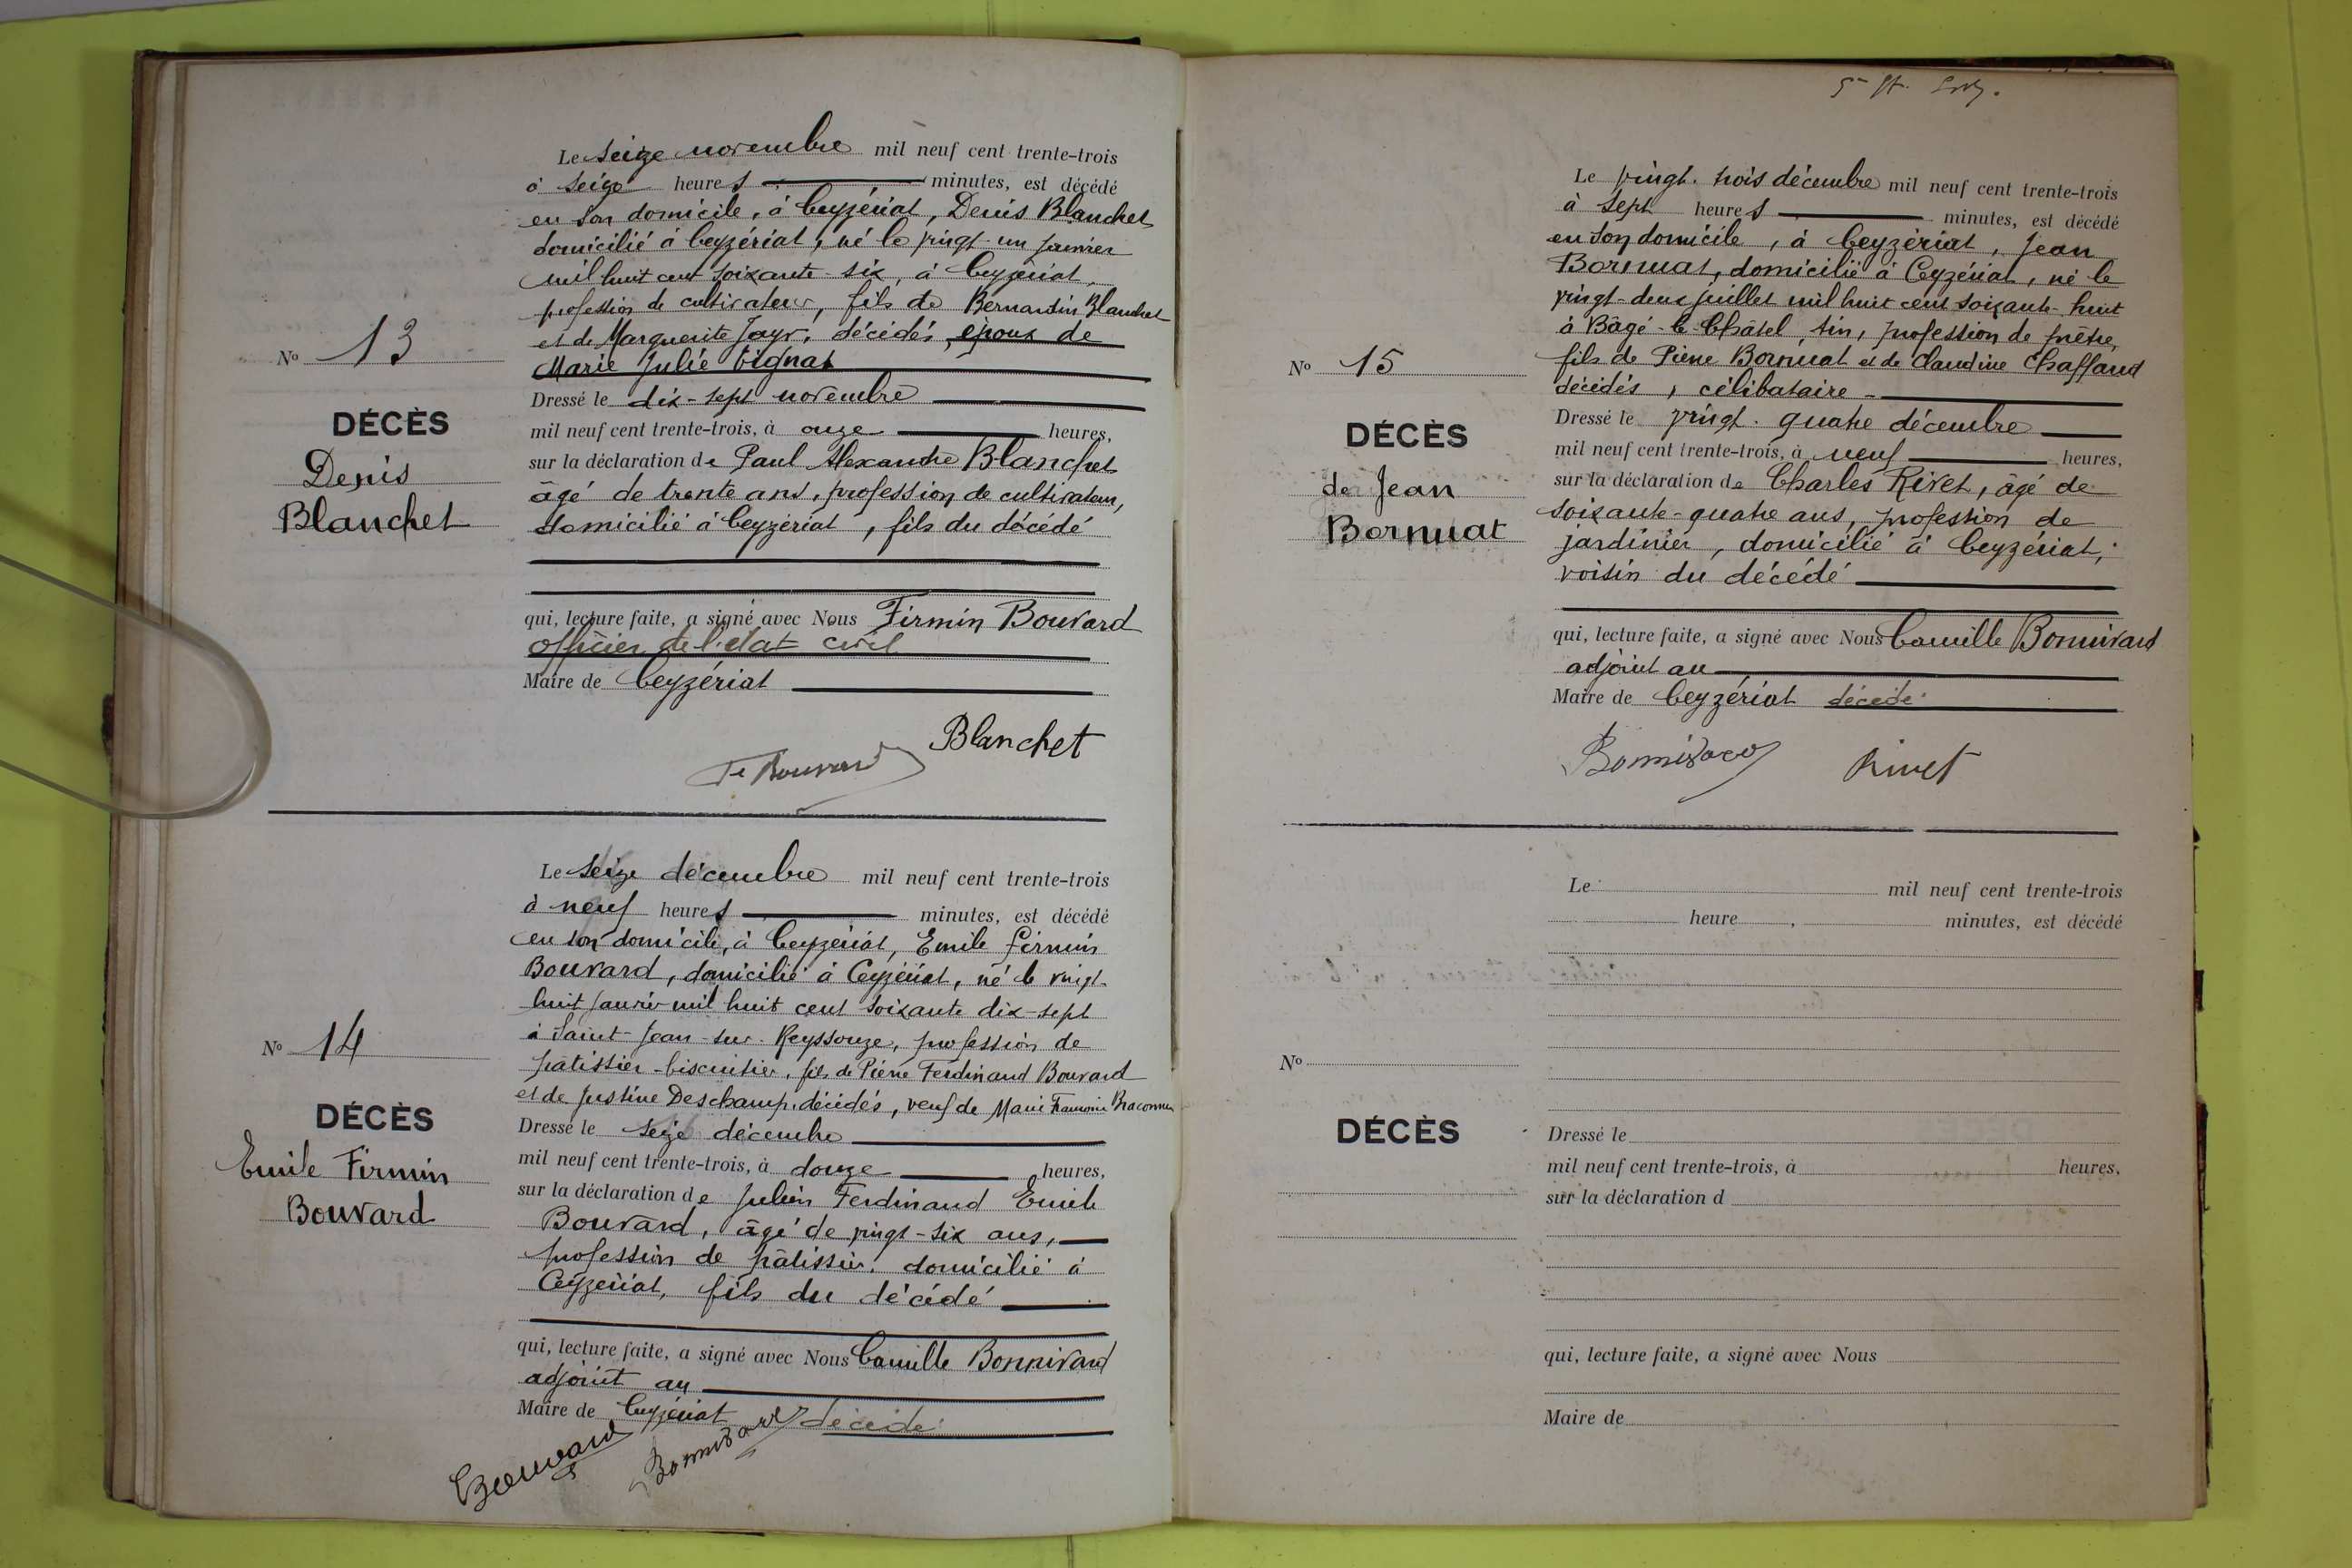 Le seize novembre mil neuf cent trente-trois
à seize heures minutes, est décédé
en son domicile, à Ceyzériat, Denis Blanchet
domicilié à Ceyzériat, né le vingt-un janvier
mil huit cent soixante-six, à Ceyzériat,
profession de cultivateur, fils de Bernardin Blanchet
et de Marguerite Jayr, décédés, époux de
Marie Julie Vignat
Dressé le dix-sept novembre
mil neuf cent trente-trois, à onze heures,
sur la déclaration de Paul Alexandre Blanchet
âgé de trente ans, profession de cultivateur,
domicilié à Ceyzériat, fils du décédé
qui, lecture faite, a signé avec Nous Firmin Bouvard
officier de l'état civil
Maire de Ceyzériat
Nº 13
DÉCÈS
Denis
Blanchet
Blanchet
Fe Bouvard
Le seize décembre mil neuf cent trente-trois
à neuf heures minutes, est décédé
en son domicile, à Ceyzériat, Emile Firmin
Bouvard, domicilié à Ceyzériat, né le vingt-
huit janvier mil huit cent soixante dix-sept
à Saint-Jean-sur-Reyssouze, profession de
pâtissier-biscuitier, fils de Pierre Ferdinand Bouvard
et de Justine Deschamp, décédés, veuf de Marie
Dressé le seize décembre
mil neuf cent trente-trois, à douze heures,
sur la déclaration de Julien Ferdinand Emile
Bouvard, âgé de vingt-six ans,
profession de pâtissier, domicilié à
Ceyzériat, fils du décédé
qui, lecture faite, a signé avec Nous Camille Bonnivard
adjoint au
Maire de Ceyzériat décédé
Nº 14
DÉCÈS
Emile Firmin
Bouvard
Bouvard
Bonnivard
Le vingt-trois décembre mil neuf cent trente-trois
à sept heures minutes, est décédé
en son domicile, à Ceyzériat, Jean
Bornuat, domicilié à Ceyzériat, né le
vingt-deux juillet mil huit cent soixante-huit
à Bâgé-le-Châtel, Ain, profession de prêtre,
fils de Pierre Bornuat et de Claudine Chaffaud
décédés, célibataire
Dressé le vingt-quatre décembre
mil neuf cent trente-trois, à neuf heures,
sur la déclaration de Charles Rivet, âgé de
soixante-quatre ans, profession de
jardinier, domicilié à Ceyzériat,
voisin du décédé
qui, lecture faite, a signé avec Nous Camille Bonnivard
adjoint au
Maire de Ceyzériat décédé
Nº 15
DÉCÈS
de Jean
Bornuat
Bonnivard
Rivet
Le mil neuf cent trente-trois
heure , minutes, est décédé
Nº
DÉCÈS
Dressé le
mil neuf cent trente-trois, à heures,
sur la déclaration d
qui, lecture faite, a signé avec Nous
Maire de